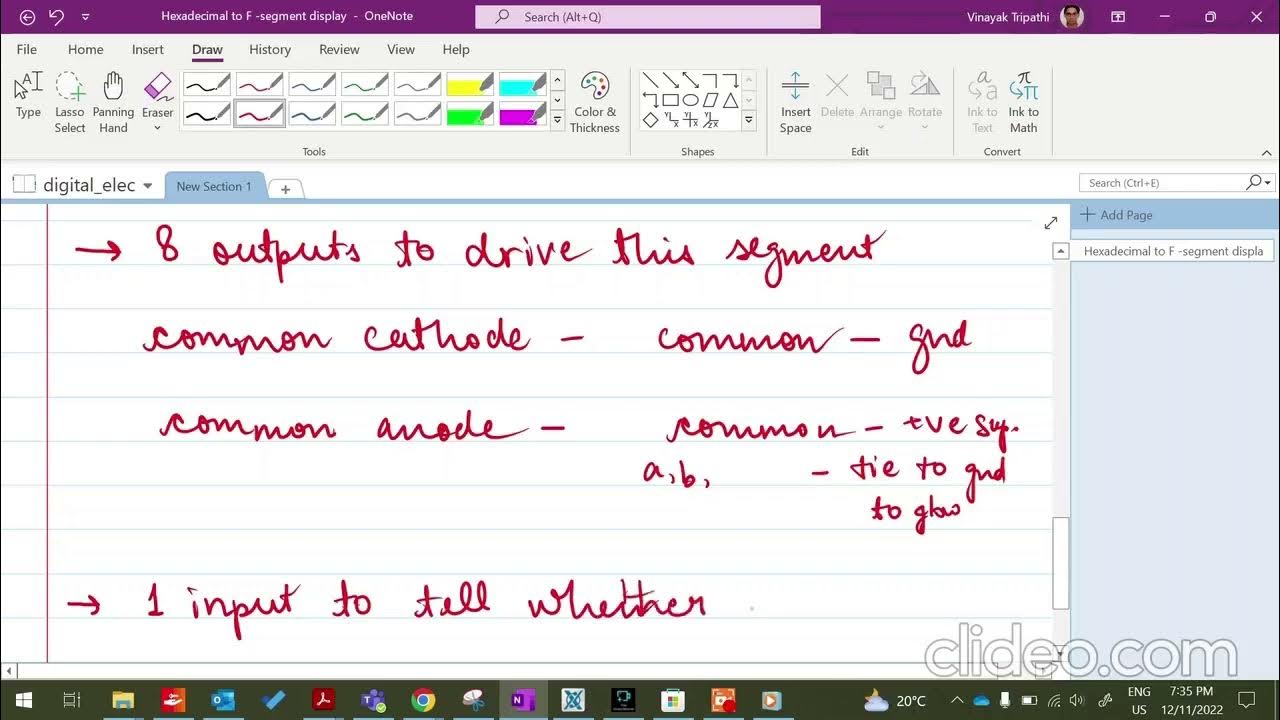 Hexadecimal to F -segment display - OneNote
Search (Alt+Q)
Vinayak Tripathi
File Home Insert Draw History Review View Help
Type
Lasso Select
Panning Hand
Eraser
Color & Thickness
Insert Space
Delete
Arrange
Rotate
Ink to Text
Ink to Math
Tools
Shapes
Edit
Convert
digital_elec
New Section 1
Search (Ctrl+E)
Add Page
Hexadecimal to F -segment displa
→ 8 outputs to drive this segment
common cathode - common - gnd
common anode - common - +ve sup.
a, b, - tie to gnd
to glow
→ 1 input to tell whether
clideo.com
20°C
ENG
US
7:35 PM
12/11/2022